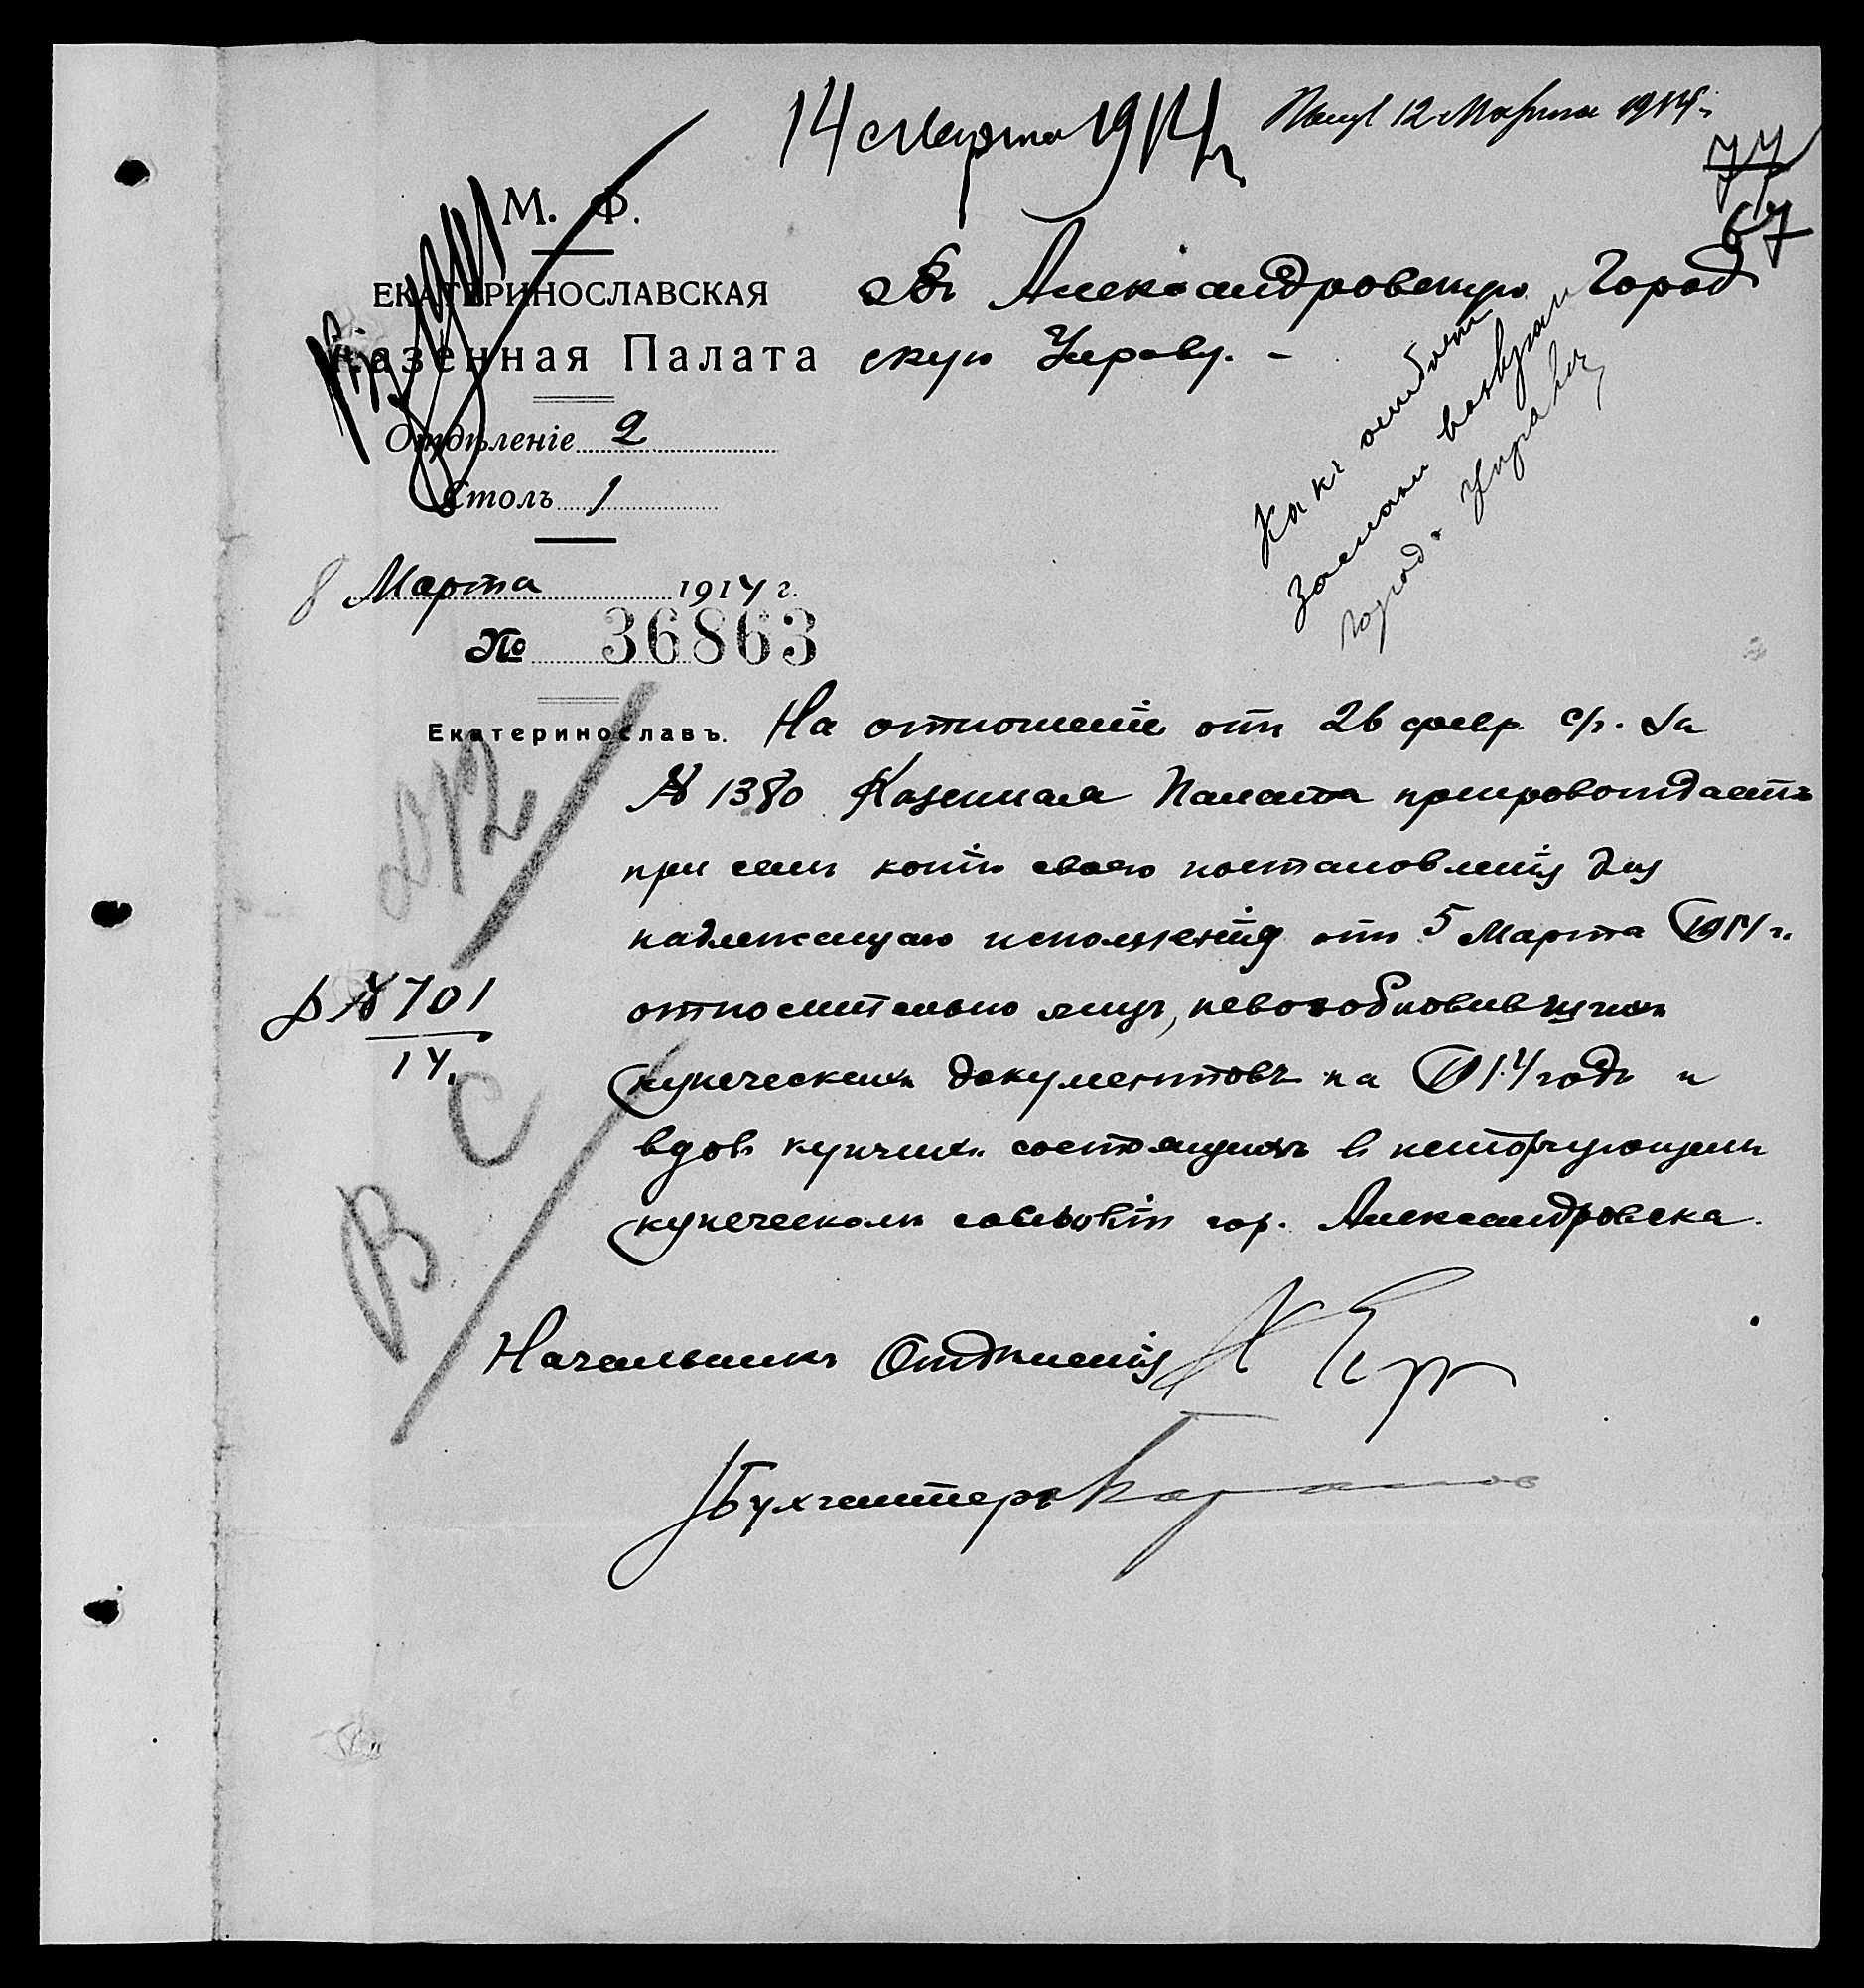 14 Марта 1914 г.
Получ 12 Марта 1914 г.
77
67
М. Ф.
ЕКАТЕРИНОСЛАВСКАЯ
Казенная Палата
Отдѣленіе 2
Столъ 1
8 Марта 1914 г.
№ 36863
Екатеринославъ.
Въ Александровскую Город
скую Управу. -
Какъ ошибочно
засланн возвращ
город. Управа
На отношеніе отъ 26 февр. с/г. за
№ 1380 Казенная Палата препровождаетъ
при семъ копію своего постановленія для
надлежащаго исполненія отъ 5 Марта 1914 г.
относительно лицъ, невозобновившихъ
купеческихъ документовъ на 1914 годъ и
вдовъ купчихъ состоящихъ въ неторгующемъ
купеческомъ сословіи гор. Александровска.
№ 701
14.
В С
Начальникъ Отдѣленія
Бухгалтеръ